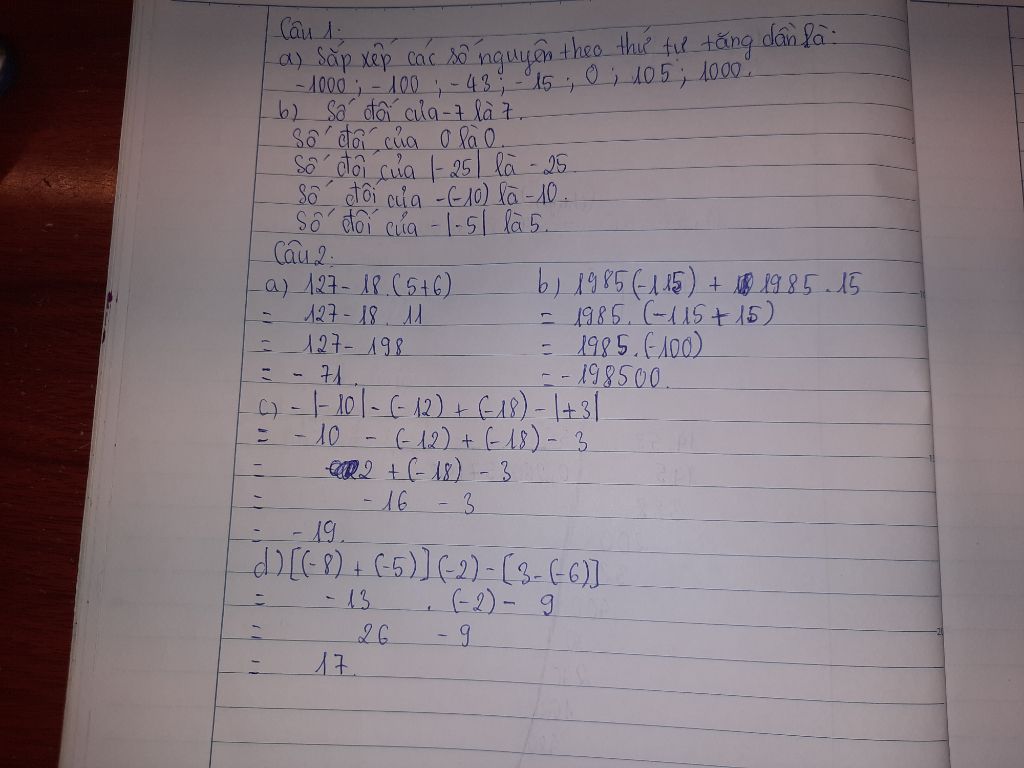 Câu 1:
a) Sắp xếp các số nguyên theo thứ tự tăng dần là:
-1000 ; -100 ; -43 ; -15 ; 0 ; 105 ; 1000.
b) Số đối của -7 là 7.
Số đối của 0 là 0.
Số đối của |-25| là -25.
Số đối của -(-10) là -10.
Số đối của -|-5| là 5.
Câu 2:
a) 127 - 18. (5+6)
= 127 - 18 . 11
= 127 - 198
= - 71.
b) 1985(-115) + 1985 . 15
= 1985. (-115 + 15)
= 1985. (-100)
= - 198500.
c) - |-10| - (-12) + (-18) - |+3|
= -10 - (-12) + (-18) - 3
= 2 + (-18) - 3
= -16 - 3
= -19.
d) [(-8) + (-5)] (-2) - [3 - (-6)]
= -13 . (-2) - 9
= 26 - 9
= 17.